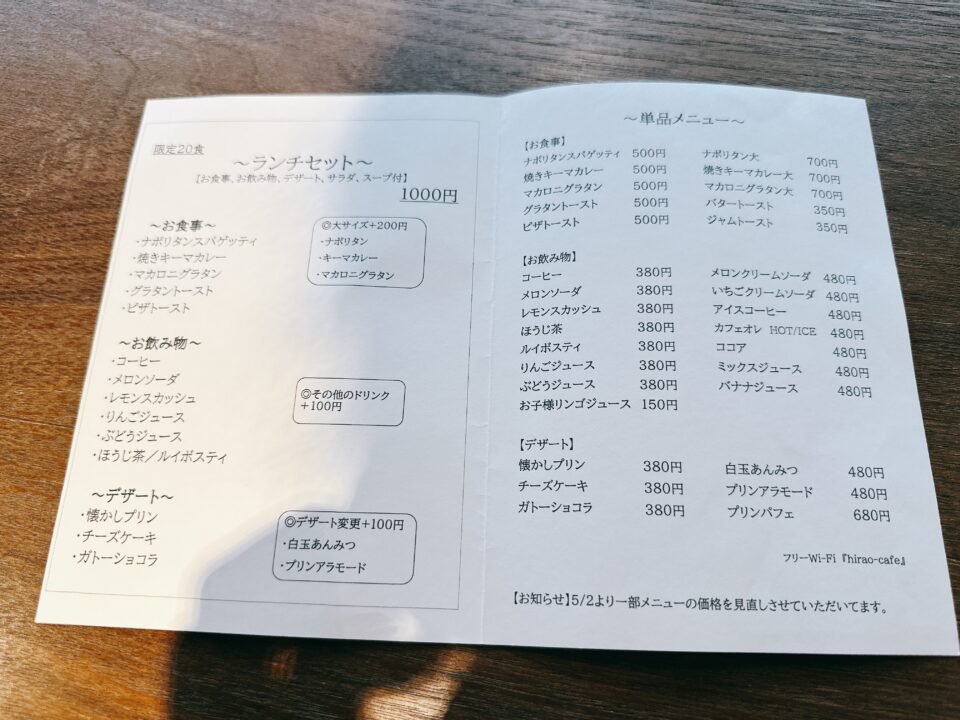 限定20食
～ランチセット～
【お食事、お飲み物、デザート、サラダ、スープ付】
1000円
～お食事～
・ナポリタンスパゲッティ
・焼きキーマカレー
・マカロニグラタン
・グラタントースト
・ピザトースト
◎大サイズ+200円
・ナポリタン
・キーマカレー
・マカロニグラタン
～お飲み物～
・コーヒー
・メロンソーダ
・レモンスカッシュ
・りんごジュース
・ぶどうジュース
・ほうじ茶／ルイボスティ
◎その他のドリンク
+100円
～デザート～
・懐かしプリン
・チーズケーキ
・ガトーショコラ
◎デザート変更+100円
・白玉あんみつ
・プリンアラモード
～単品メニュー～
【お食事】
ナポリタンスパゲッティ 500円 ナポリタン大 700円
焼きキーマカレー 500円 焼きキーマカレー大 700円
マカロニグラタン 500円 マカロニグラタン大 700円
グラタントースト 500円 バタートースト 350円
ピザトースト 500円 ジャムトースト 350円
【お飲み物】
コーヒー 380円 メロンクリームソーダ 480円
メロンソーダ 380円 いちごクリームソーダ 480円
レモンスカッシュ 380円 アイスコーヒー 480円
ほうじ茶 380円 カフェオレ HOT/ICE 480円
ルイボスティ 380円 ココア 480円
りんごジュース 380円 ミックスジュース 480円
ぶどうジュース 380円 バナナジュース 480円
お子様リンゴジュース 150円
【デザート】
懐かしプリン 380円 白玉あんみつ 480円
チーズケーキ 380円 プリンアラモード 480円
ガトーショコラ 380円 プリンパフェ 680円
フリーWi-Fi『hirao-cafe』
【お知らせ】5/2より一部メニューの価格を見直しさせていただいてます。